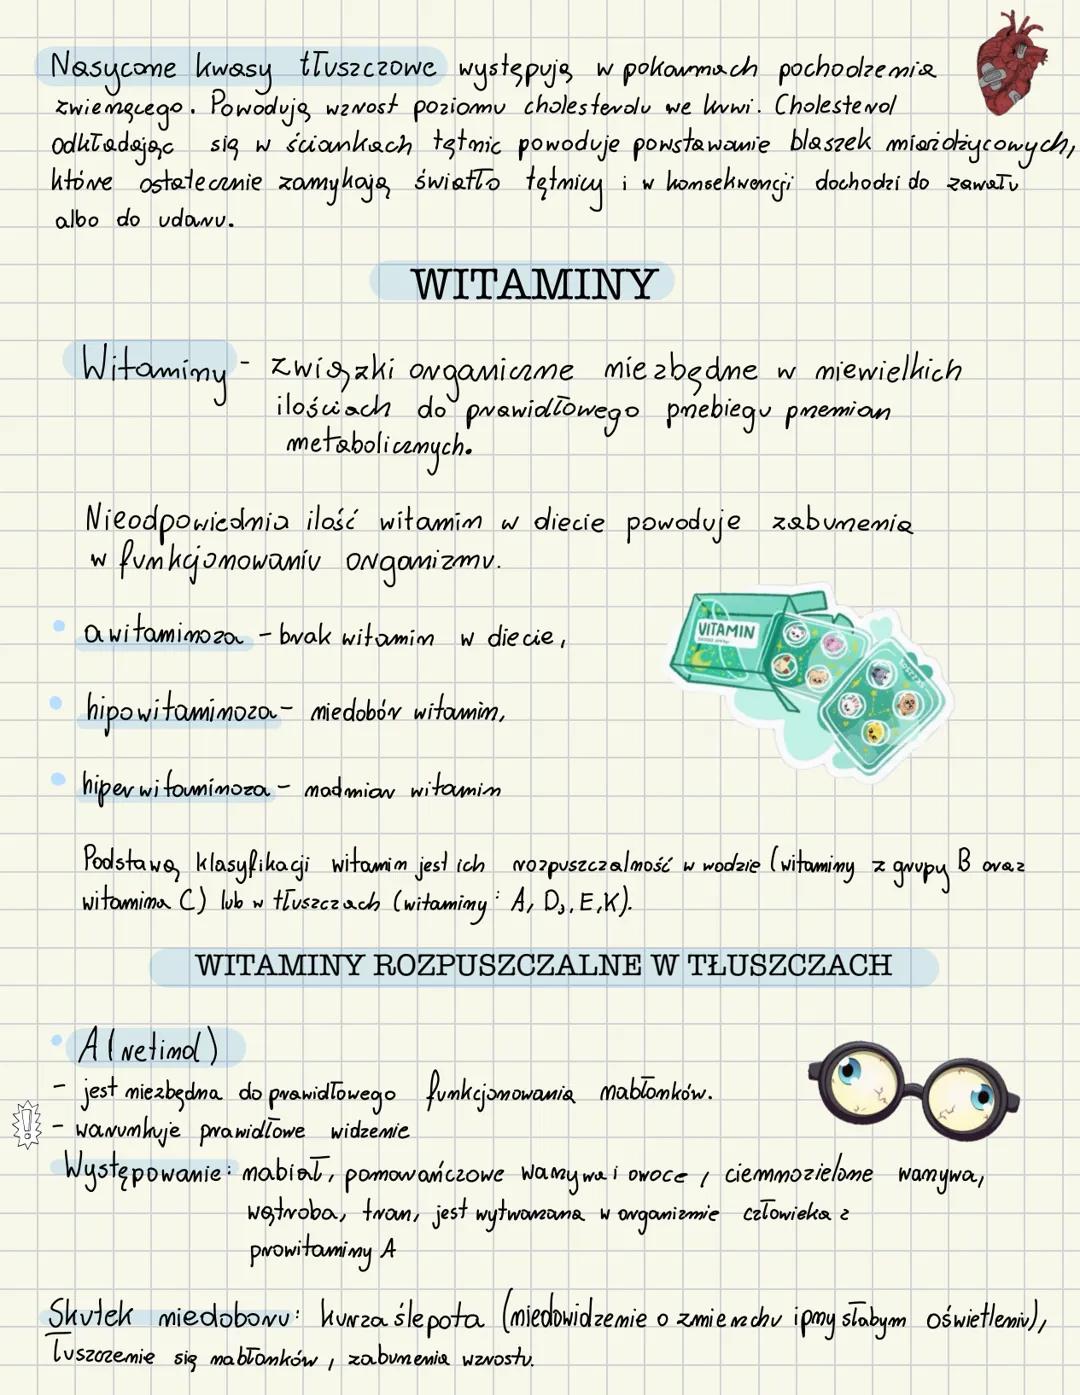 Nasycone kwasy tłuszczowe występują w pokarmach pochodzenia
zwierzęcego. Powodują wzrost poziomu cholesterolu we krwi. Cholesterol
odkładając się w ściankach tętnic powoduje powstawanie blaszek miażdżycowych,
które ostatecznie zamykają światło tętnicy i w konsekwencji dochodzi do zawału
albo do udaru.
WITAMINY
Witaminy - związki organiczne niezbędne w niewielkich
ilościach do prawidłowego przebiegu przemian
metabolicznych.
Nieodpowiednia ilość witamin w diecie powoduje zaburzenia
w funkcjonowaniu organizmu.
• awitaminoza - brak witamin w diecie,
VITAMIN
• hipowitaminoza - niedobór witamin,
• hiperwitaminoza - nadmiar witamin
Podstawą klasyfikacji witamin jest ich rozpuszczalność w wodzie (witaminy z grupy B oraz
witamina C) lub w tłuszczach (witaminy: A, D₃, E, K).
WITAMINY ROZPUSZCZALNE W TŁUSZCZACH
• A (retinol)
- jest niezbędna do prawidłowego funkcjonowania nabłonków.
- warunkuje prawidłowe widzenie
Występowanie: nabiał, pomarańczowe warzywa i owoce, ciemnozielone warzywa,
wątroba, tran, jest wytwarzana w organizmie człowieka z
prowitaminy A
Skutek niedoboru: kurza ślepota (niedowidzenie o zmierzchu i przy słabym oświetleniu),
Łuszczenie się nabłonków, zaburzenia wzrostu.